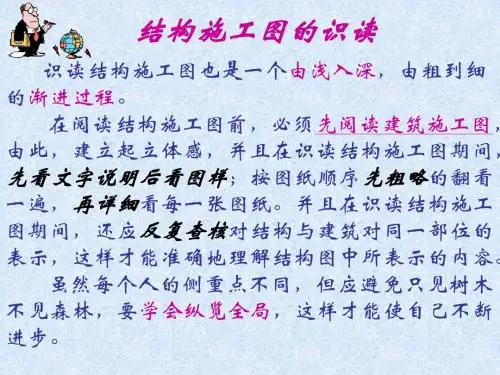 结构施工图的识读
识读结构施工图也是一个由浅入深，由粗到细
的渐进过程。
在阅读结构施工图前，必须先阅读建筑施工图，
由此，建立起立体感，并且在识读结构施工图期间，
先看文字说明后看图样；按图纸顺序先粗略的翻看
一遍，再详细看每一张图纸。并且在识读结构施工
图期间，还应反复查核对结构与建筑对同一部位的
表示，这样才能准确地理解结构图中所表示的内容。
虽然每个人的侧重点不同，但应避免只见树木
不见森林，要学会纵览全局，这样才能使自己不断
进步。